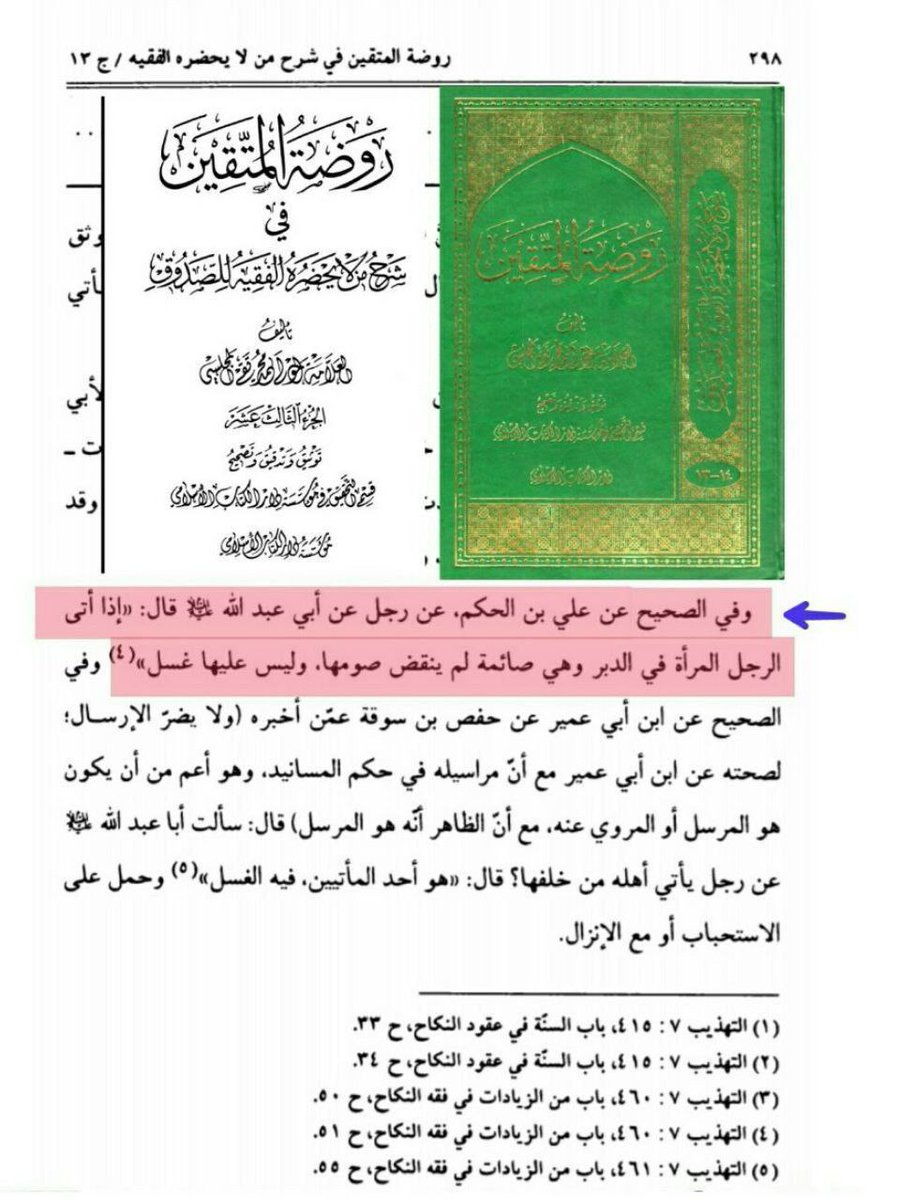 ٢٩٨
روضة المتقين في شرح من لا يحضره الفقيه / ج ١٣
روضة المتقين
في
شرح من لا يحضره الفقيه للصدوق
تأليف
العلامة المولى محمد تقي المجلسي
الجزء الثالث عشر
توثيق وتدقيق وتصحيح
قسم التحقيق في مؤسسة دار الكتاب الإسلامي
مؤسسة دار الكتاب الإسلامي
روضة المتقين
تأليف
١٣-١٤
وثق
أتي
لأبي
ت ـ
وقد
وفي الصحيح عن علي بن الحكم، عن رجل عن أبي عبد الله عليه السلام قال: «إذا أتى
الرجل المرأة في الدبر وهي صائمة لم ينقض صومها، وليس عليها غسل»(٤) وفي
الصحيح عن ابن أبي عمير عن حفص بن سوقة عمّن أخبره (ولا يضرّ الإرسال؛
لصحته عن ابن أبي عمير مع أنّ مراسيله في حكم المسانيد، وهو أعم من أن يكون
هو المرسل أو المروي عنه، مع أنّ الظاهر أنّه هو المرسل) قال: سألت أبا عبد الله عليه السلام
عن رجل يأتي أهله من خلفها؟ قال: «هو أحد المأتيين، فيه الغسل»(٥) وحمل على
الاستحباب أو مع الإنزال.
(١) التهذيب ٧ : ٤١٥، باب السنّة في عقود النكاح، ح ٣٣.
(٢) التهذيب ٧ : ٤١٥، باب السنّة في عقود النكاح، ح ٣٤.
(٣) التهذيب ٧ : ٤٦٠، باب من الزيادات في فقه النكاح، ح ٥٠.
(٤) التهذيب ٧ : ٤٦٠، باب من الزيادات في فقه النكاح، ح ٥١.
(٥) التهذيب ٧ : ٤٦١، باب من الزيادات في فقه النكاح، ح ٥٥.